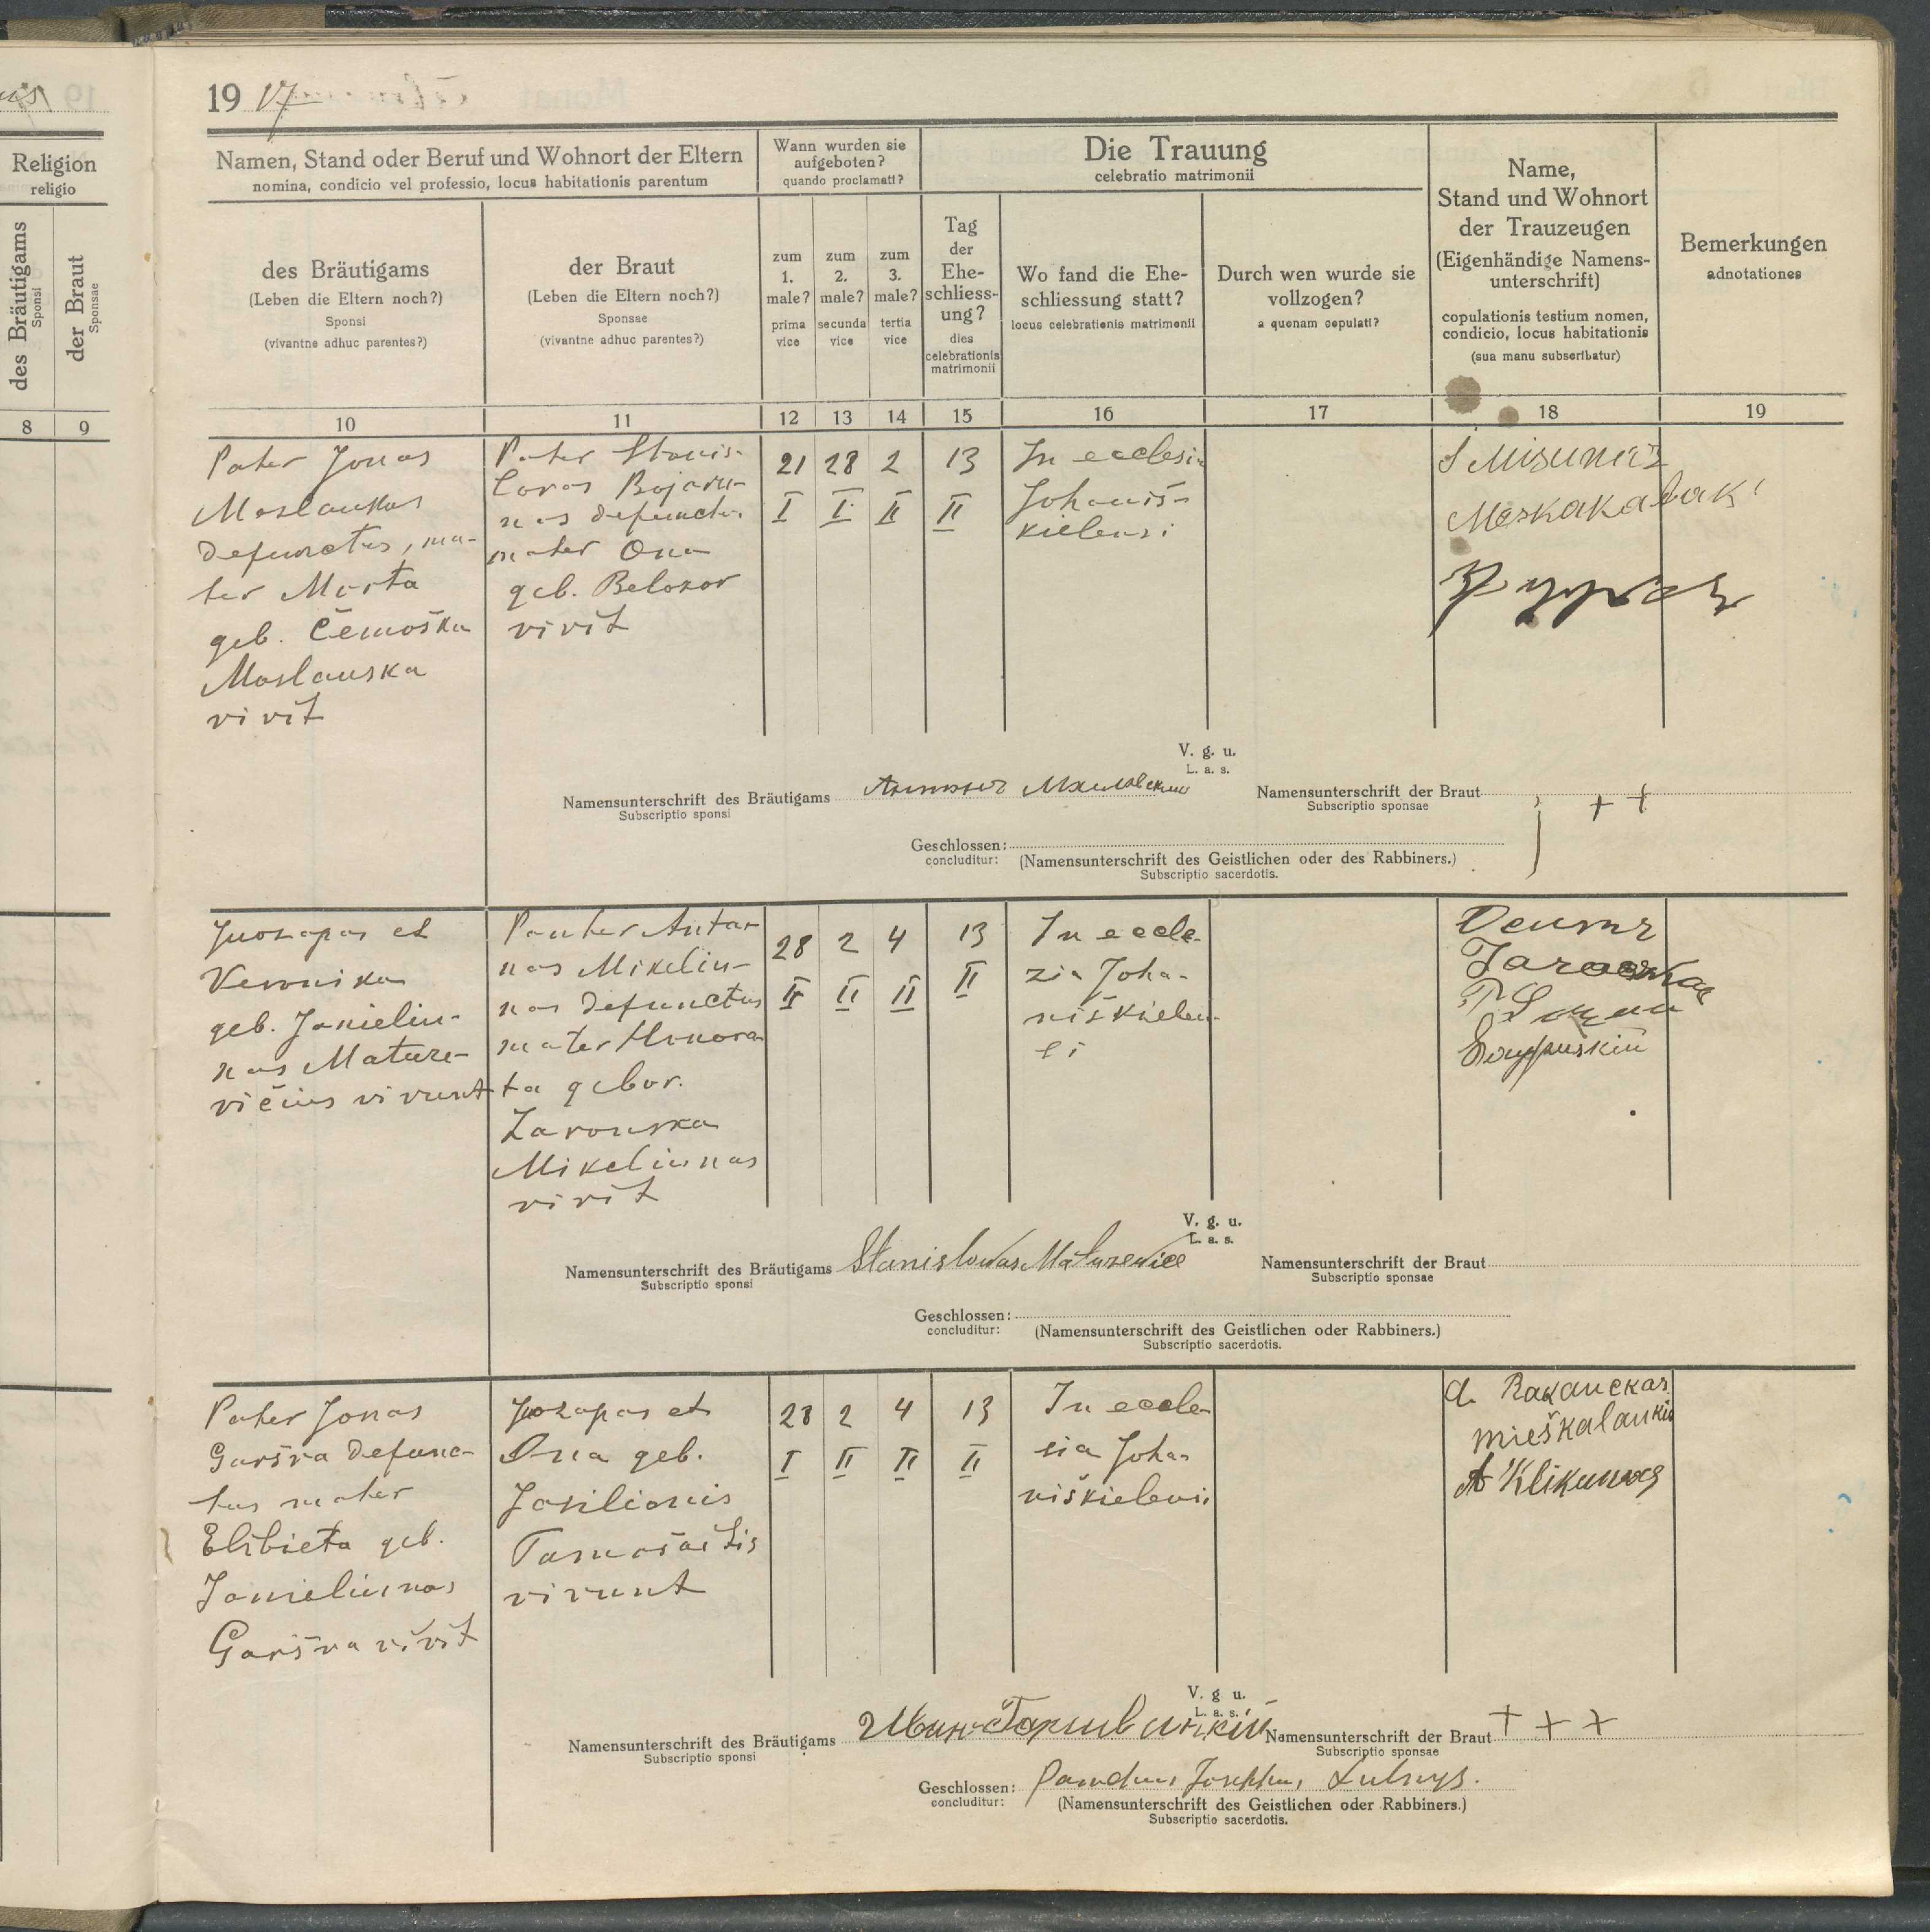 19 17
Religion
religio
des Bräutigams
Sponsi
der Braut
Sponsae
8 9
Namen, Stand oder Beruf und Wohnort der Eltern
nomina, condicio vel professio, locus habitationis parentum
des Bräutigams
(Leben die Eltern noch?)
Sponsi
(vivantne adhuc parentes?)
der Braut
(Leben die Eltern noch?)
Sponsae
(vivantne adhuc parentes?)
Wann wurden sie
aufgeboten?
quando proclamati?
zum
1.
male?
prima
vice
zum
2.
male?
secunda
vice
zum
3.
male?
tertia
vice
Die Trauung
celebratio matrimonii
Tag
der
Ehe-
schliess-
ung?
dies
celebrationis
matrimonii
Wo fand die Ehe-
schliessung statt?
locus celebrationis matrimonii
Durch wen wurde sie
vollzogen?
a quonam copulati?
Name,
Stand und Wohnort
der Trauzeugen
(Eigenhändige Namens-
unterschrift)
copulationis testium nomen,
condicio, locus habitationis
(sua manu subscribatur)
Bemerkungen
adnotationes
10 11 12 13 14 15 16 17 18 19
Pater Jonas
Maslauskas
defunctus, ma-
ter Marta
geb. Čemoška
Maslauska
vivit
Pater Stanis-
lovas Bojaru-
nas defunctus
mater Ona
geb. Belozor
vivit
21 28 2 13
I I II II
In ecclesia
Johaniš-
kielensi
V. g. u.
L. a. s.
Namensunterschrift des Bräutigams
Subscriptio sponsi
Namensunterschrift der Braut + +
Subscriptio sponsae
Geschlossen:
concluditur:
(Namensunterschrift des Geistlichen oder des Rabbiners.)
Subscriptio sacerdotis.
Juozapas et
Veronika
geb. Janieliu-
nas Mature-
vičius vivunt
Pauter Anta-
nas Mikeliu-
nas defunctus
mater Honora-
ta gebor.
Zarouska
Mikeliunas
vivit
28 2 4 13
II II II II
In eccle-
zia Joha-
niškielen-
si
V. g. u.
L. a. s.
Namensunterschrift des Bräutigams Stanislowas
Subscriptio sponsi
Namensunterschrift der Braut
Subscriptio sponsae
Geschlossen:
concluditur:
(Namensunterschrift des Geistlichen oder Rabbiners.)
Subscriptio sacerdotis.
Pater Jonas
Garšva defunc-
tus mater
Elzbieta geb.
Janieliunas
Garšva vivit
Juozapas et
Ona geb.
Jasilionis
Tamošaitis
vivunt
28 2 4 13
I II II II
In eccle-
sia Joha-
niškielensi
A. Rakauckas
mieškalaukiu
A Klikunas
V. g u.
L. a. s.
Namensunterschrift des Bräutigams
Subscriptio sponsi
Namensunterschrift der Braut + + +
Subscriptio sponsae
Geschlossen:
concluditur:
(Namensunterschrift des Geistlichen oder Rabbiners.)
Subscriptio sacerdotis.